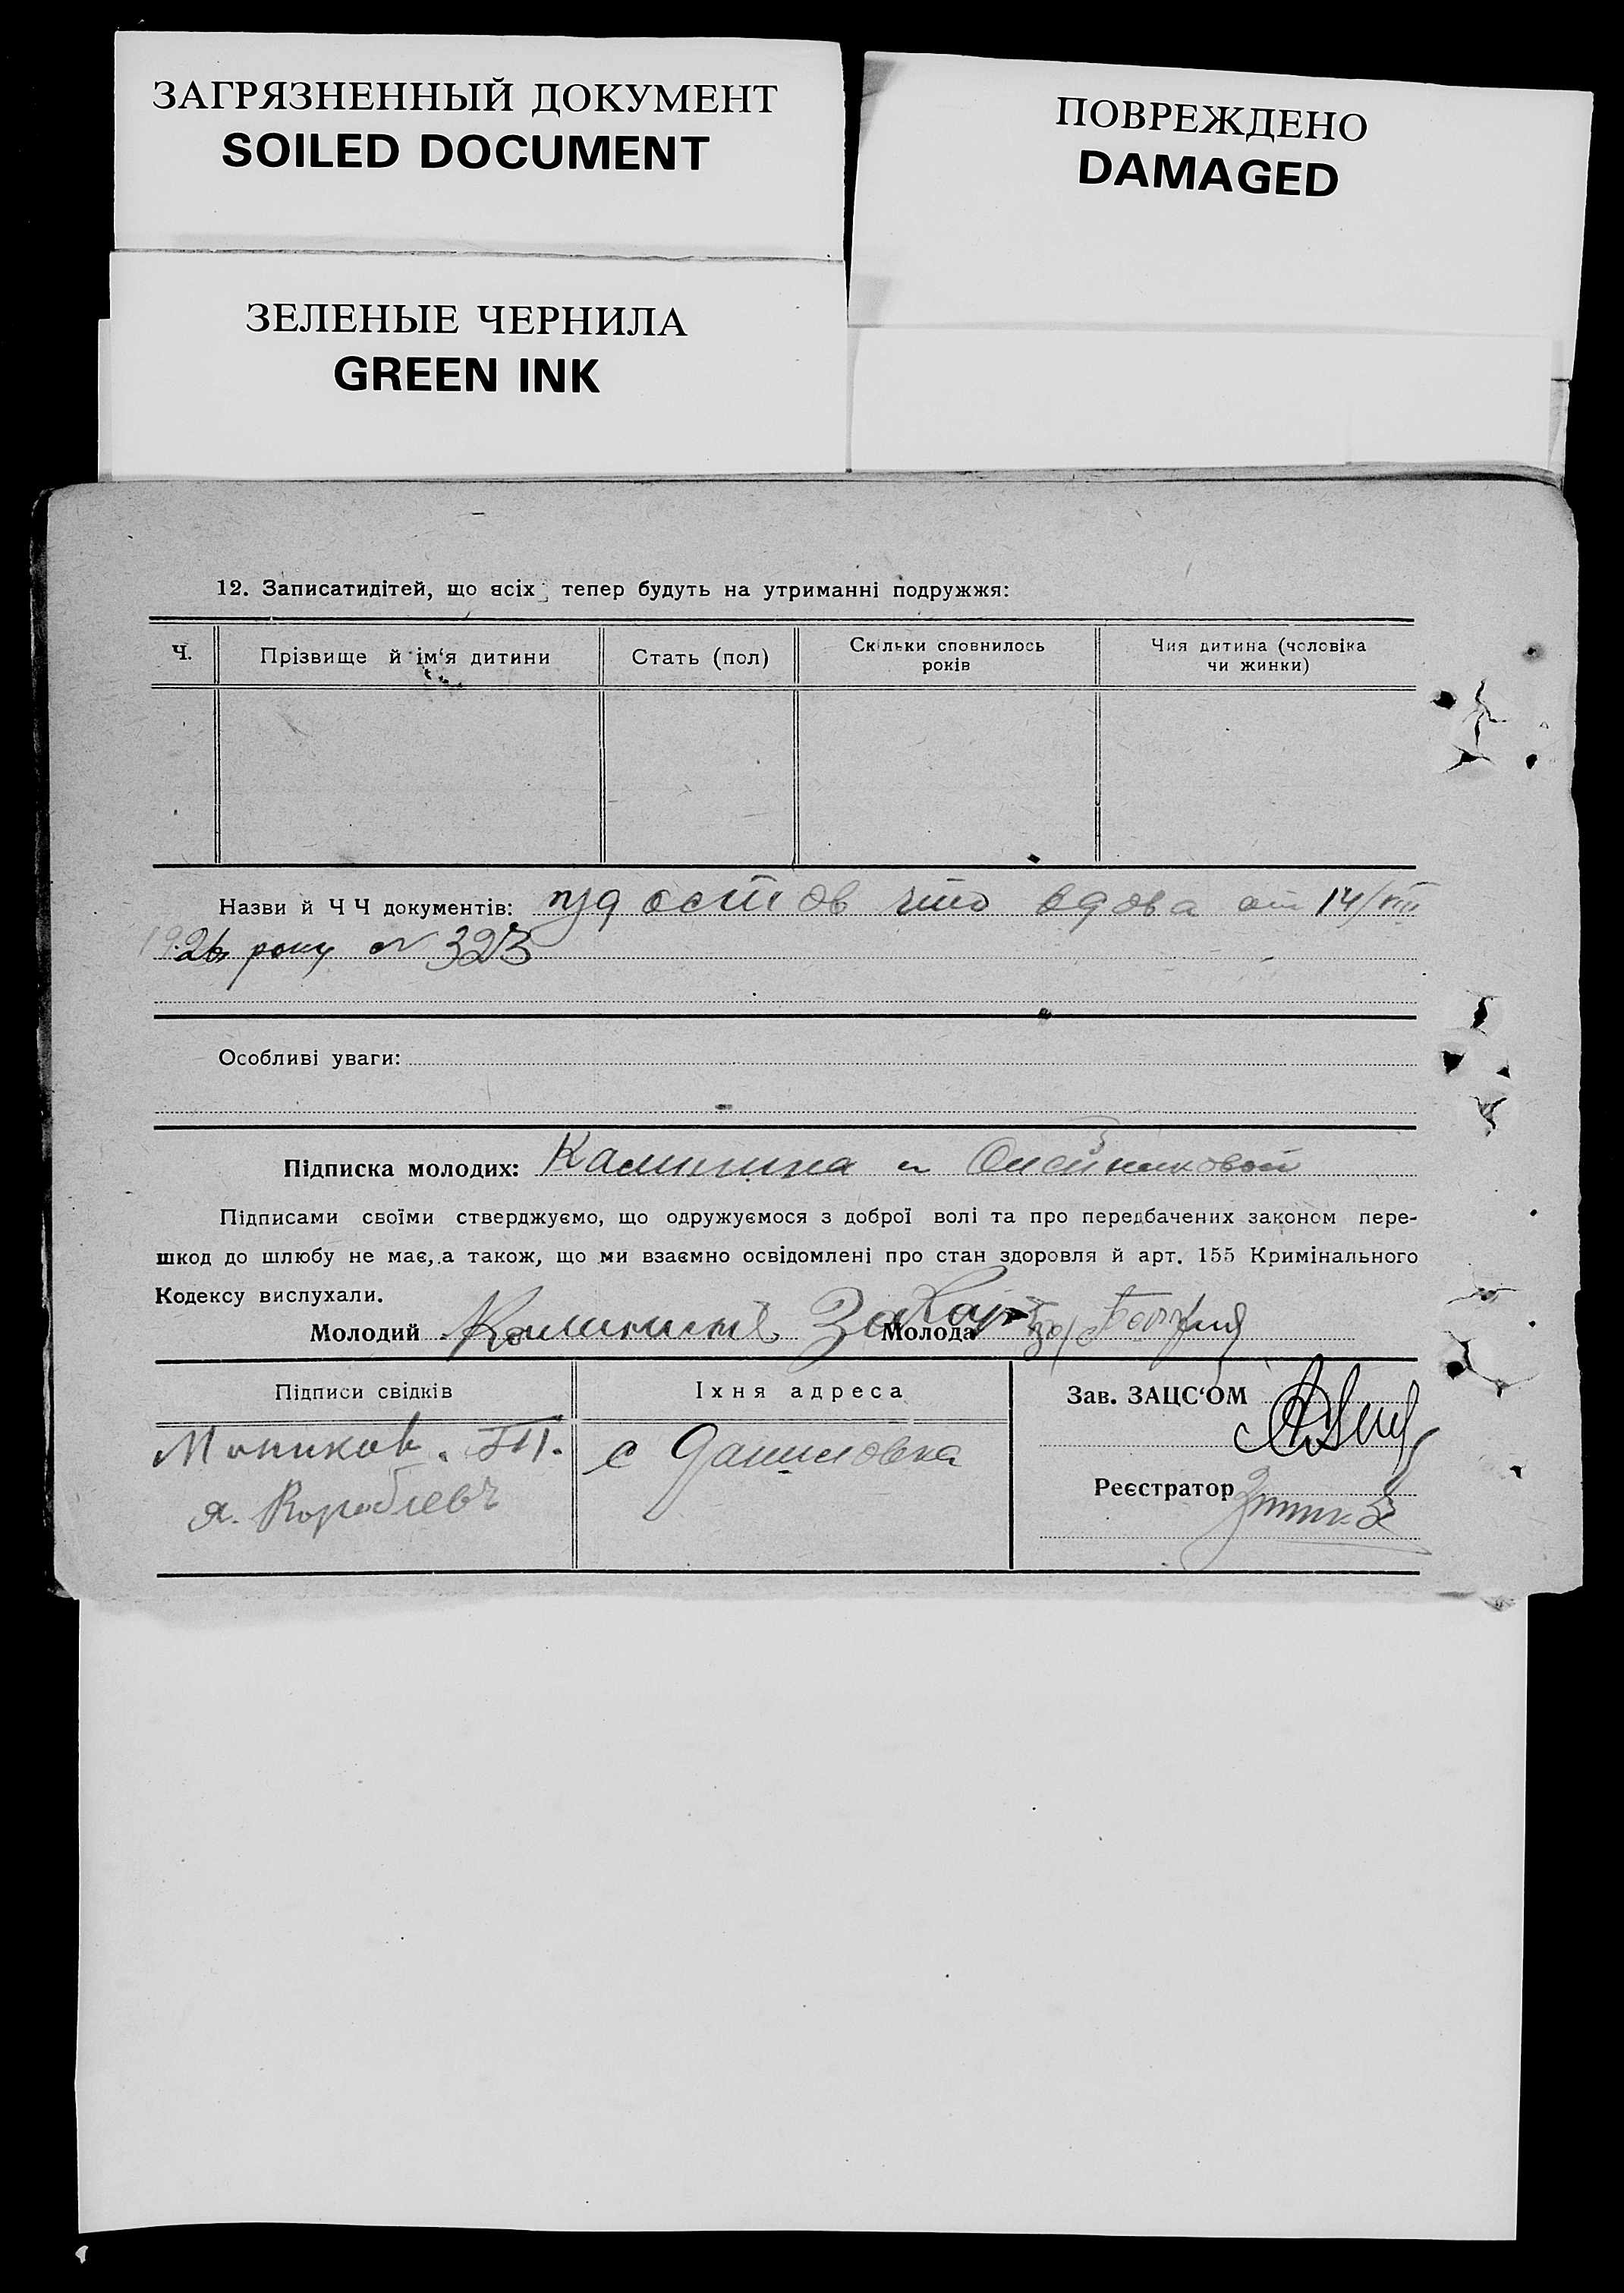 ЗАГРЯЗНЕННЫЙ ДОКУМЕНТ
SOILED DOCUMENT
ПОВРЕЖДЕНО
DAMAGED
ЗЕЛЕНЫЕ ЧЕРНИЛА
GREEN INK
12. Записатидітей, що всіх тепер будуть на утриманні подружжя:
Ч.
Прізвище й ім‘я дитини
Стать (пол)
Скільки сповнилось
років
Чия дитина (чоловіка
чи жинки)
Назви й Ч Ч документів: что вдова от 14/VIII
1926 року № 323
Особливі уваги:
Підписка молодих: Калинина и Олейниковой
Підписами своїми стверджуємо, що одружуємося з доброї волі та про передбачених законом пере-
шкод до шлюбу не має, а також, що ми взаємно освідомлені про стан здоровля й арт. 155 Кримінального
Кодексу вислухали.
Молодий Калинин Захар Молода
Підписи свідків
Їхня адреса
Зав. ЗАЦС‘ОМ
с Даниловка
Я. Коробьевъ
Реєстратор